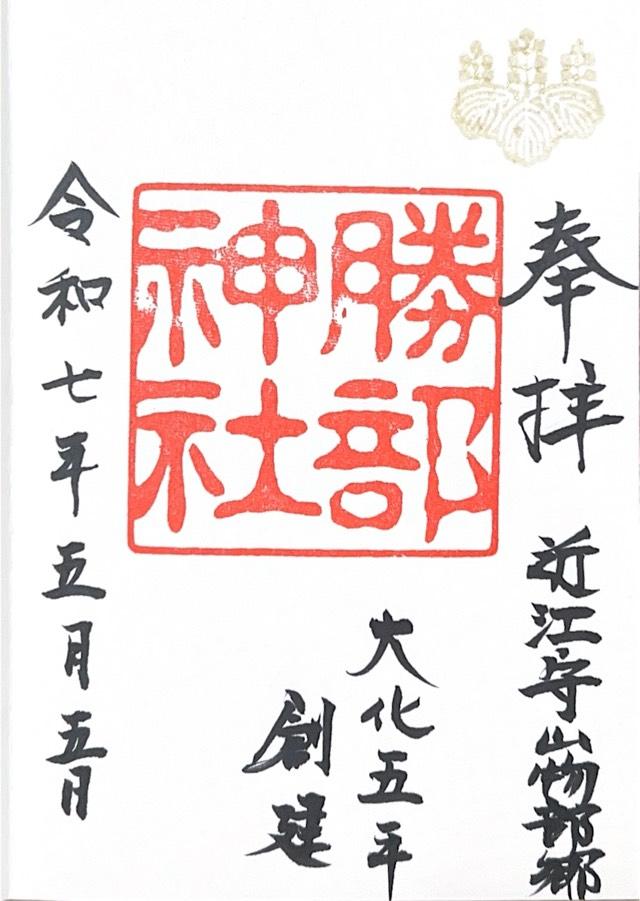 奉拝
近江守山物部郷
勝部
神社
大化五年
創建
令和七年五月五日